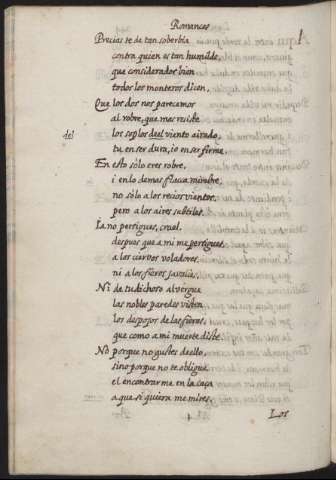 Romances
Precias te de tan soberbia
contra quien es tan humilde,
que considerado bien
todos los monteros dicen,
Que los dos nos parecemos
al robre, que mas resiste
del
los soplos deel viento airado,
tu en ser dura, io en ser firme.
En esto sólo eres robre,
i en lo demas flaca mimbre,
no sólo a los recios vientos,
pero a los aires subtiles.
Ia no persigues, cruel,
despues que a mi me persigues,
a los ciervos voladores,
ni a los fieros javalis.
Ni de tu dichoso alvergue
las nobles paredes visten
los despojos de las fieras,
que como a mi muerte diste.
No porque no gustes de ello,
sino porque no te obligue
el encontrarme en la caça
a que si quiera me mires.
Los